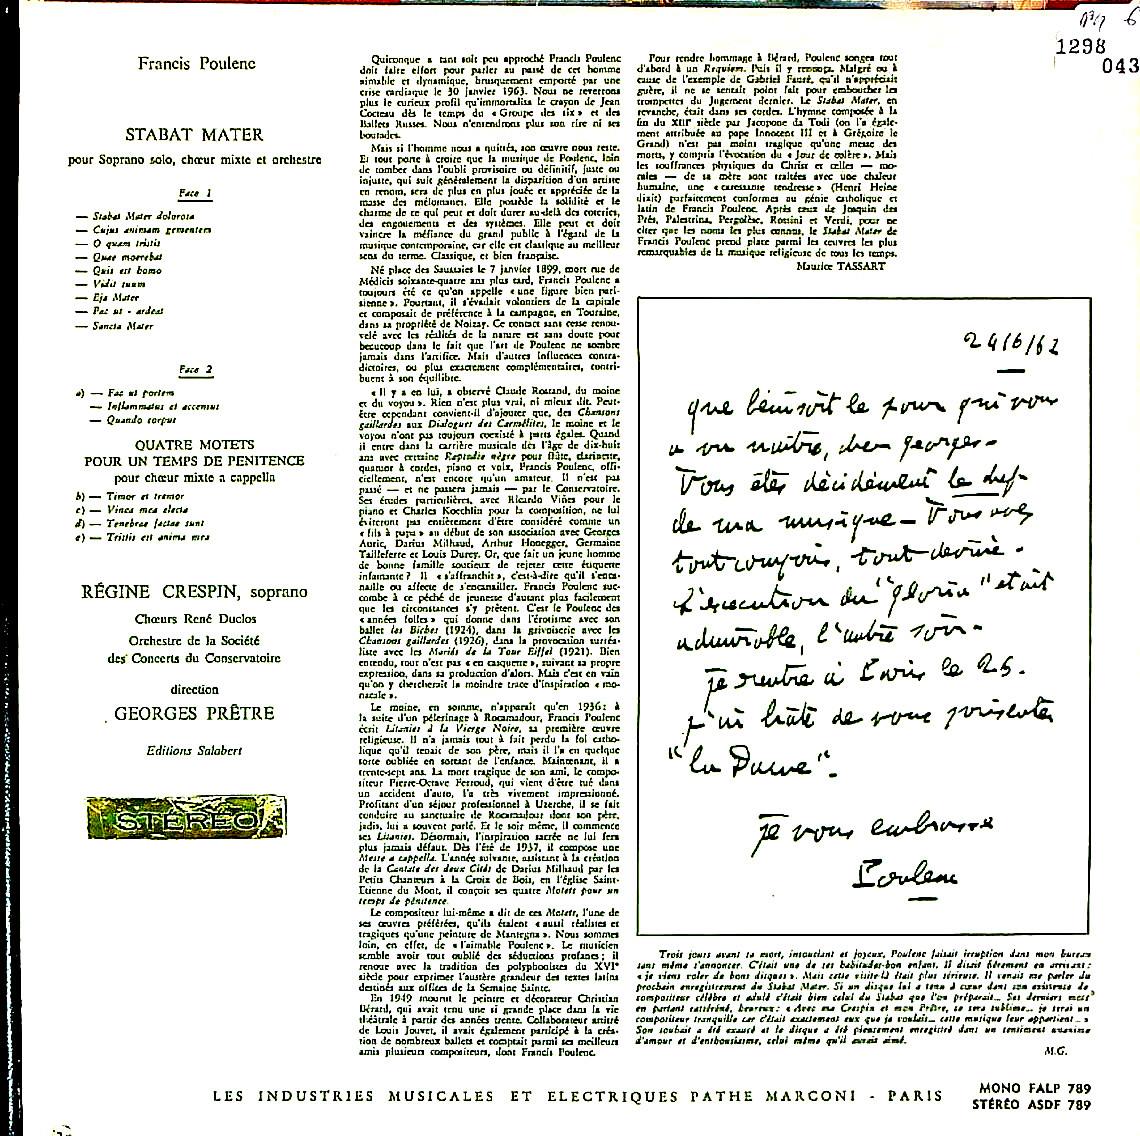 1298
043
Francis Poulenc
STABAT MATER
pour Soprano solo, chœur mixte et orchestre
Face 1
— Stabat Mater dolorosa
— Cujus animam gementem
— O quam tristis
— Quae moerebat
— Quis est homo
— Vidit suum
— Eja Mater
— Fac ut - ardeat
— Sancta Mater
Face 2
a) — Fac ut portem
— Inflammatus et accensus
— Quando corpus
QUATRE MOTETS
POUR UN TEMPS DE PENITENCE
pour chœur mixte a cappella
b) — Timor et tremor
c) — Vinea mea electa
d) — Tenebrae factae sunt
e) — Tristis est anima mea
RÉGINE CRESPIN, soprano
Chœurs René Duclos
Orchestre de la Société
des Concerts du Conservatoire
direction
GEORGES PRÊTRE
Editions Salabert
STEREO
Quiconque a tant soit peu approché Francis Poulenc
doit faire effort pour parler au passé de cet homme
aimable et dynamique, brusquement emporté par une
crise cardiaque le 30 janvier 1963. Nous ne reverrons
plus le curieux profil qu'immortalisa le crayon de Jean
Cocteau dès le temps du « Groupe des six » et des
Ballets Russes. Nous n'entendrons plus son rire ni ses
boutades.
Mais si l'homme nous a quittés, son œuvre nous reste.
Et tout porte à croire que la musique de Poulenc, loin
de tomber dans l'oubli provisoire ou définitif, juste ou
injuste, qui suit généralement la disparition d'un artiste
en renom, sera de plus en plus jouée et appréciée de la
masse des mélomanes. Elle possède la solidité et le
charme de ce qui peut et doit durer au-delà des coteries,
des engouements et des systèmes. Elle peut et doit
vaincre la méfiance du grand public à l'égard de la
musique contemporaine, car elle est classique au meilleur
sens du terme. Classique, et bien française.
Né place des Saussaies le 7 janvier 1899, mort rue de
Médicis soixante-quatre ans plus tard, Francis Poulenc a
toujours été ce qu'on appelle « une figure bien pari-
sienne ». Pourtant, il s'évadait volontiers de la capitale
et composait de préférence à la campagne, en Touraine,
dans sa propriété de Noizay. Ce contact sans cesse renou-
velé avec les réalités de la nature est sans doute pour
beaucoup dans le fait que l'art de Poulenc ne sombre
jamais dans l'artifice. Mais d'autres influences contra-
dictoires, ou plus exactement complémentaires, contri-
buent à son équilibre.
« Il y a en lui, a observé Claude Rostand, du moine
et du voyou ». Rien n'est plus vrai, ni mieux dit. Peut-
être cependant convient-il d'ajouter que, des Chansons
gaillardes aux Dialogues des Carmélites, le moine et le
voyou n'ont pas toujours coexisté à parts égales. Quand
il entre dans la carrière musicale dès l'âge de dix-huit
ans avec certaine Rapsodie nègre pour flûte, clarinette,
quatuor à cordes, piano et voix, Francis Poulenc, offi-
ciellement, n'est encore qu'un amateur. Il n'est pas
passé — et ne passera jamais — par le Conservatoire.
Ses études particulières, avec Ricardo Viñes pour le
piano et Charles Koechlin pour la composition, ne lui
éviteront pas entièrement d'être considéré comme un
« fils à papa » au début de son association avec Georges
Auric, Darius Milhaud, Arthur Honegger, Germaine
Tailleferre et Louis Durey. Or, que fait un jeune homme
de bonne famille soucieux de rejeter cette étiquette
infamante ? Il « s'affranchit », c'est-à-dire qu'il s'enca-
naille ou affecte de s'encanailler. Francis Poulenc suc-
combe à ce péché de jeunesse d'autant plus facilement
que les circonstances s'y prêtent. C'est le Poulenc des
« années folles » qui donne dans l'érotisme avec son
ballet les Biches (1924), dans la grivoiserie avec les
Chansons gaillardes (1926), dans la provocation surréa-
liste avec les Mariés de la Tour Eiffel (1921). Bien
entendu, tout n'est pas « en casquette », suivant sa propre
expression, dans sa production d'alors. Mais c'est en vain
qu'on y chercherait la moindre trace d'inspiration « mo-
nacale ».
Le moine, en somme, n'apparaît qu'en 1936 : à
la suite d'un pèlerinage à Rocamadour, Francis Poulenc
écrit Litanies à la Vierge Noire, sa première œuvre
religieuse. Il n'a jamais tout à fait perdu la foi catho-
lique qu'il tenait de son père, mais il l'a en quelque
sorte oubliée en sortant de l'enfance. Maintenant, il a
trente-sept ans. La mort tragique de son ami, le compo-
siteur Pierre-Octave Ferroud, qui vient d'être tué dans
un accident d'auto, l'a très vivement impressionné.
Profitant d'un séjour professionnel à Uzerche, il se fait
conduire au sanctuaire de Rocamadour dont son père,
jadis, lui a souvent parlé. Et le soir même, il commence
ses Litanies. Désormais, l'inspiration sacrée ne lui fera
plus jamais défaut. Dès l'été de 1937, il compose une
Messe a cappella. L'année suivante, assistant à la création
de la Cantate des deux Cités de Darius Milhaud par les
Petits Chanteurs à la Croix de Bois, en l'église Saint-
Etienne du Mont, il conçoit ses quatre Motets pour un
temps de pénitence.
Le compositeur lui-même a dit de ces Motets, l'une de
ses œuvres préférées, qu'ils étaient « aussi réalistes et
tragiques qu'une peinture de Mantegna ». Nous sommes
loin, en effet, de « l'aimable Poulenc ». Le musicien
semble avoir tout oublié des séductions profanes ; il
renoue avec la tradition des polyphonistes du XVIe
siècle pour exprimer l'austère grandeur des textes latins
destinés aux offices de la Semaine Sainte.
En 1949 mourut le peintre et décorateur Christian
Bérard, qui avait tenu une si grande place dans la vie
théâtrale à partir des années trente. Collaborateur attitré
de Louis Jouvet, il avait également participé à la créa-
tion de nombreux ballets et comptait parmi ses meilleurs
amis plusieurs compositeurs, dont Francis Poulenc.
Pour rendre hommage à Bérard, Poulenc songea tout
d'abord à un Requiem. Puis il y renonça. Malgré ou à
cause de l'exemple de Gabriel Fauré, qu'il n'appréciait
guère, il ne se sentait point fait pour emboucher les
trompettes du Jugement dernier. Le Stabat Mater, en
revanche, était dans ses cordes. L'hymne composée à la
fin du XIIIe siècle par Jacopone da Todi (on l'a égale-
ment attribuée au pape Innocent III et à Grégoire le
Grand) n'est pas moins tragique qu'une messe des
morts, y compris l'évocation du « Jour de colère ». Mais
les souffrances physiques du Christ et celles — mo-
rales — de sa mère sont traitées avec une chaleur
humaine, une « caressante tendresse » (Henri Heine
dixit) parfaitement conformes au génie catholique et
latin de Francis Poulenc. Après ceux de Josquin des
Prés, Palestrina, Pergolèse, Rossini et Verdi, pour ne
citer que les noms les plus connus, le Stabat Mater de
Francis Poulenc prend place parmi les œuvres les plus
remarquables de la musique religieuse de tous les temps.
Maurice TASSART
24/6/62
que béni soit le jour qui vous
a vu naître, cher Georges -
Vous êtes décidément le chef
de ma musique - Vous avez
tout compris, tout deviné.
L'exécution du "Gloria" était
admirable, l'autre soir -
Je rentre à Paris le 25.
J'ai hâte de vous présenter
"la Dame".
Je vous embrasse
Poulenc
Trois jours avant sa mort, insouciant et joyeux, Poulenc faisait irruption dans mon bureau
sans même s'annoncer. C'était une de ses habitudes-bon enfant. Il disait fièrement en arrivant :
« je viens voler de bons disques ». Mais cette visite-là était plus sérieuse. Il venait me parler du
prochain enregistrement du Stabat Mater. Si un disque lui a tenu à cœur dans son existence de
compositeur célèbre et adulé c'était bien celui du Stabat que l'on préparait... Ses derniers mots
en partant rasséréné, heureux : « Avec ma Crespin et mon Prêtre, ce sera sublime... je serai un
compositeur tranquille car c'était exactement eux que je voulais... cette musique leur appartient... »
Son souhait a été exaucé et le disque a été pieusement enregistré dans un sentiment unanime
d'amour et d'enthousiasme, celui même qu'il aurait aimé.
M.G.
LES INDUSTRIES MUSICALES ET ELECTRIQUES PATHE MARCONI - PARIS
MONO FALP 789
STÉRÉO ASDF 789